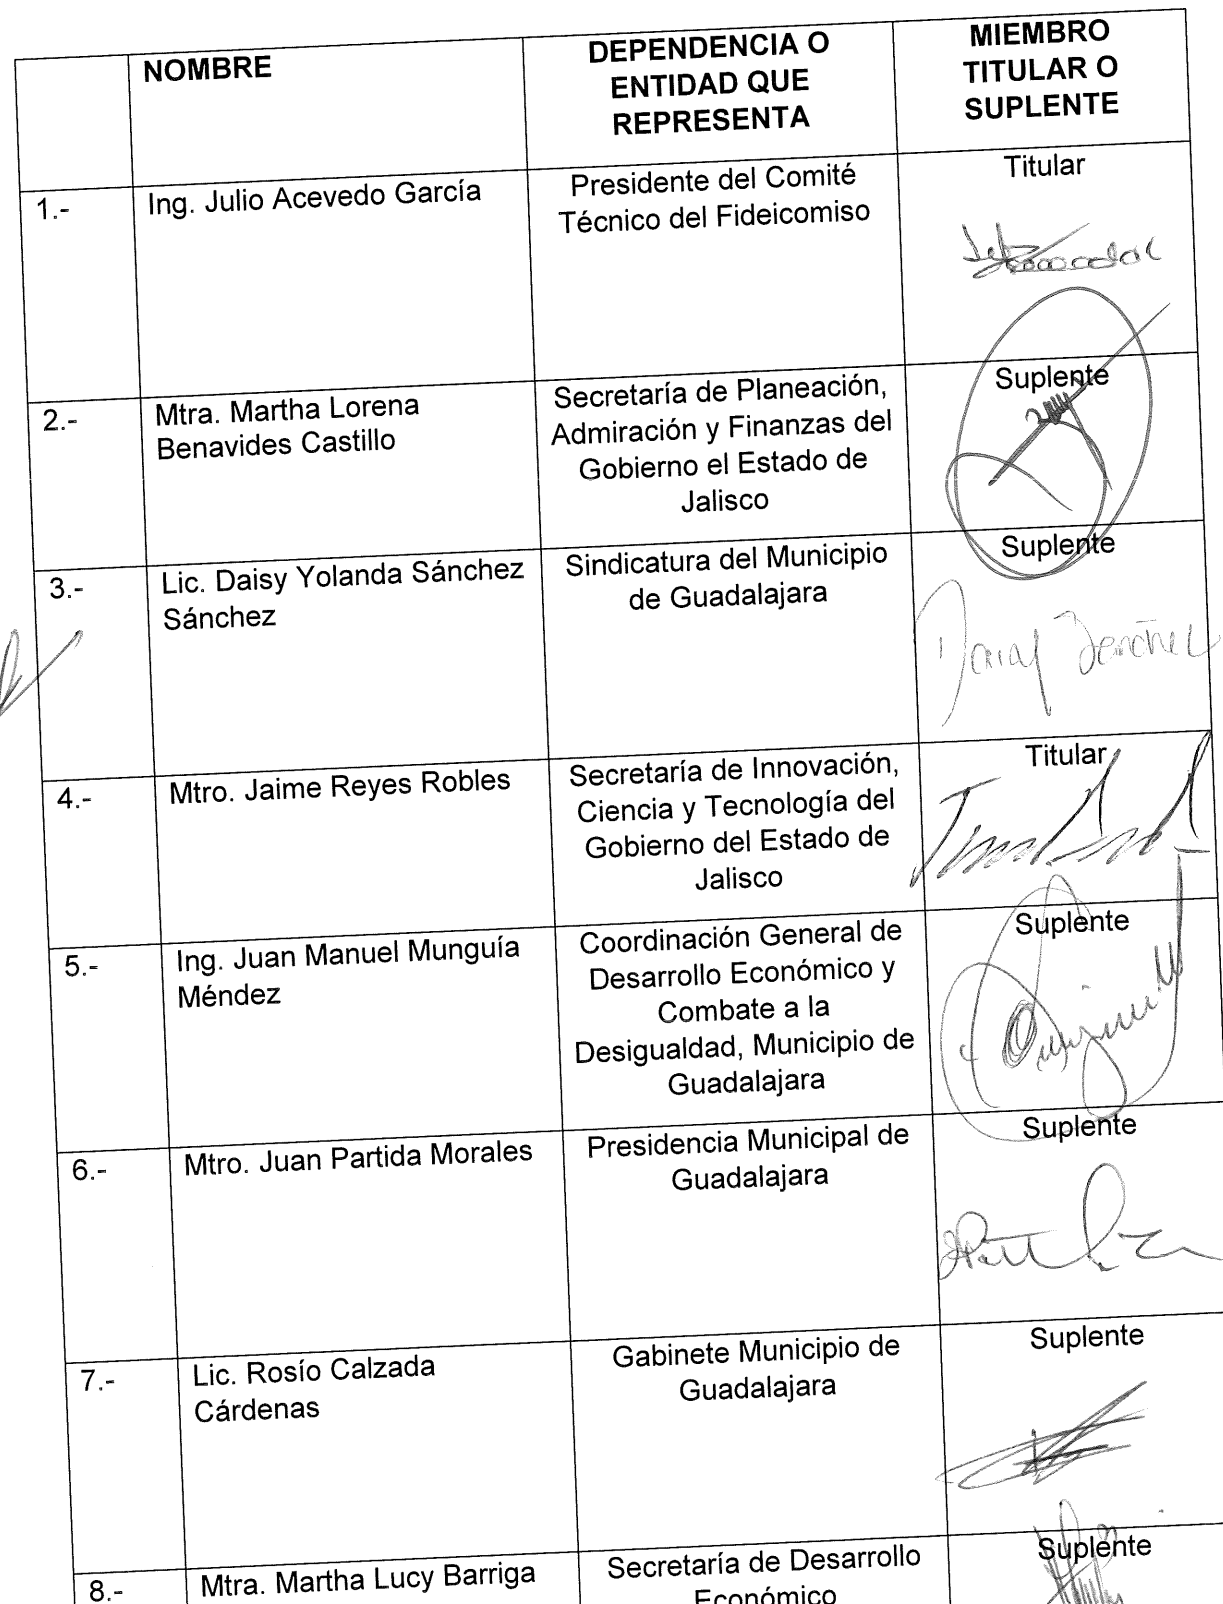 NOMBRE
DEPENDENCIA O
ENTIDAD QUE
REPRESENTA
MIEMBRO
TITULAR O
SUPLENTE
1.-
Ing. Julio Acevedo García
Presidente del Comité
Técnico del Fideicomiso
Titular
2.-
Mtra. Martha Lorena
Benavides Castillo
Secretaría de Planeación,
Admiración y Finanzas del
Gobierno el Estado de
Jalisco
Suplente
3.-
Lic. Daisy Yolanda Sánchez
Sánchez
Sindicatura del Municipio
de Guadalajara
Suplente
Daisy Sanchez
4.-
Mtro. Jaime Reyes Robles
Secretaría de Innovación,
Ciencia y Tecnología del
Gobierno del Estado de
Jalisco
Titular
5.-
Ing. Juan Manuel Munguía
Méndez
Coordinación General de
Desarrollo Económico y
Combate a la
Desigualdad, Municipio de
Guadalajara
Suplente
6.-
Mtro. Juan Partida Morales
Presidencia Municipal de
Guadalajara
Suplente
7.-
Lic. Rosío Calzada
Cárdenas
Gabinete Municipio de
Guadalajara
Suplente
8.-
Mtra. Martha Lucy Barriga
Secretaría de Desarrollo
Económico
Suplente